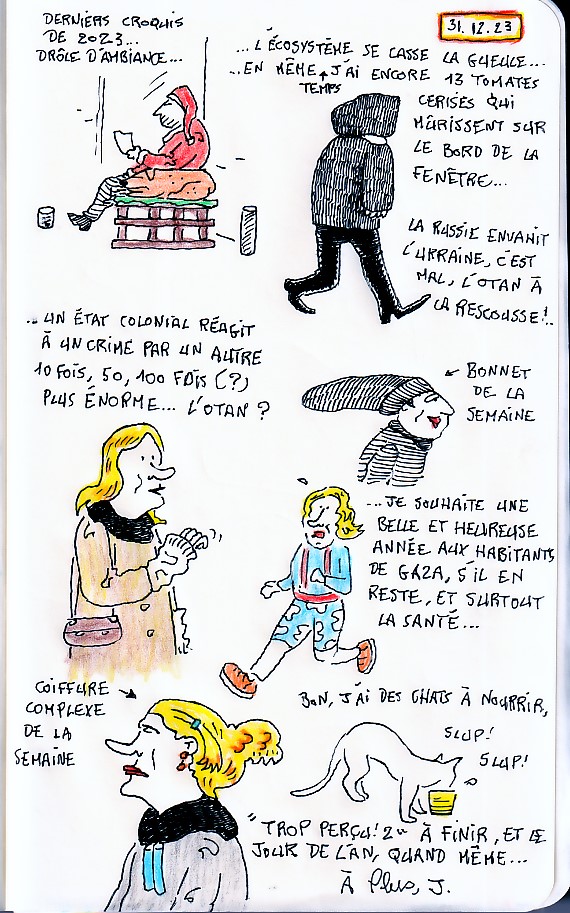 DERNIERS CROQUIS
DE 2023...
DRÔLE D'AMBIANCE...
31.12.23
...L'ÉCOSYSTÈME SE CASSE LA GUEULE...
...EN MÊME TEMPS, J'AI ENCORE 13 TOMATES
CERISES QUI
MÛRISSENT SUR
LE BORD DE LA
FENÊTRE...
LA RUSSIE ENVAHIT
L'UKRAINE, C'EST
MAL, L'OTAN À
LA RESCOUSSE!..
...UN ÉTAT COLONIAL RÉAGIT
À UN CRIME PAR UN AUTRE
10 FOIS, 50, 100 FOIS (?)
PLUS ÉNORME... L'OTAN?
BONNET
DE LA
SEMAINE
...JE SOUHAITE UNE
BELLE ET HEUREUSE
ANNÉE AUX HABITANTS
DE GAZA, S'IL EN
RESTE, ET SURTOUT
LA SANTÉ...
COIFFURE
COMPLEXE
DE LA
SEMAINE
BON, J'AI DES CHATS À NOURRIR,
SLUP!
SLUP!
"TROP PERÇU! 2" À FINIR, ET LE
JOUR DE L'AN, QUAND MÊME...
À Plus, J.